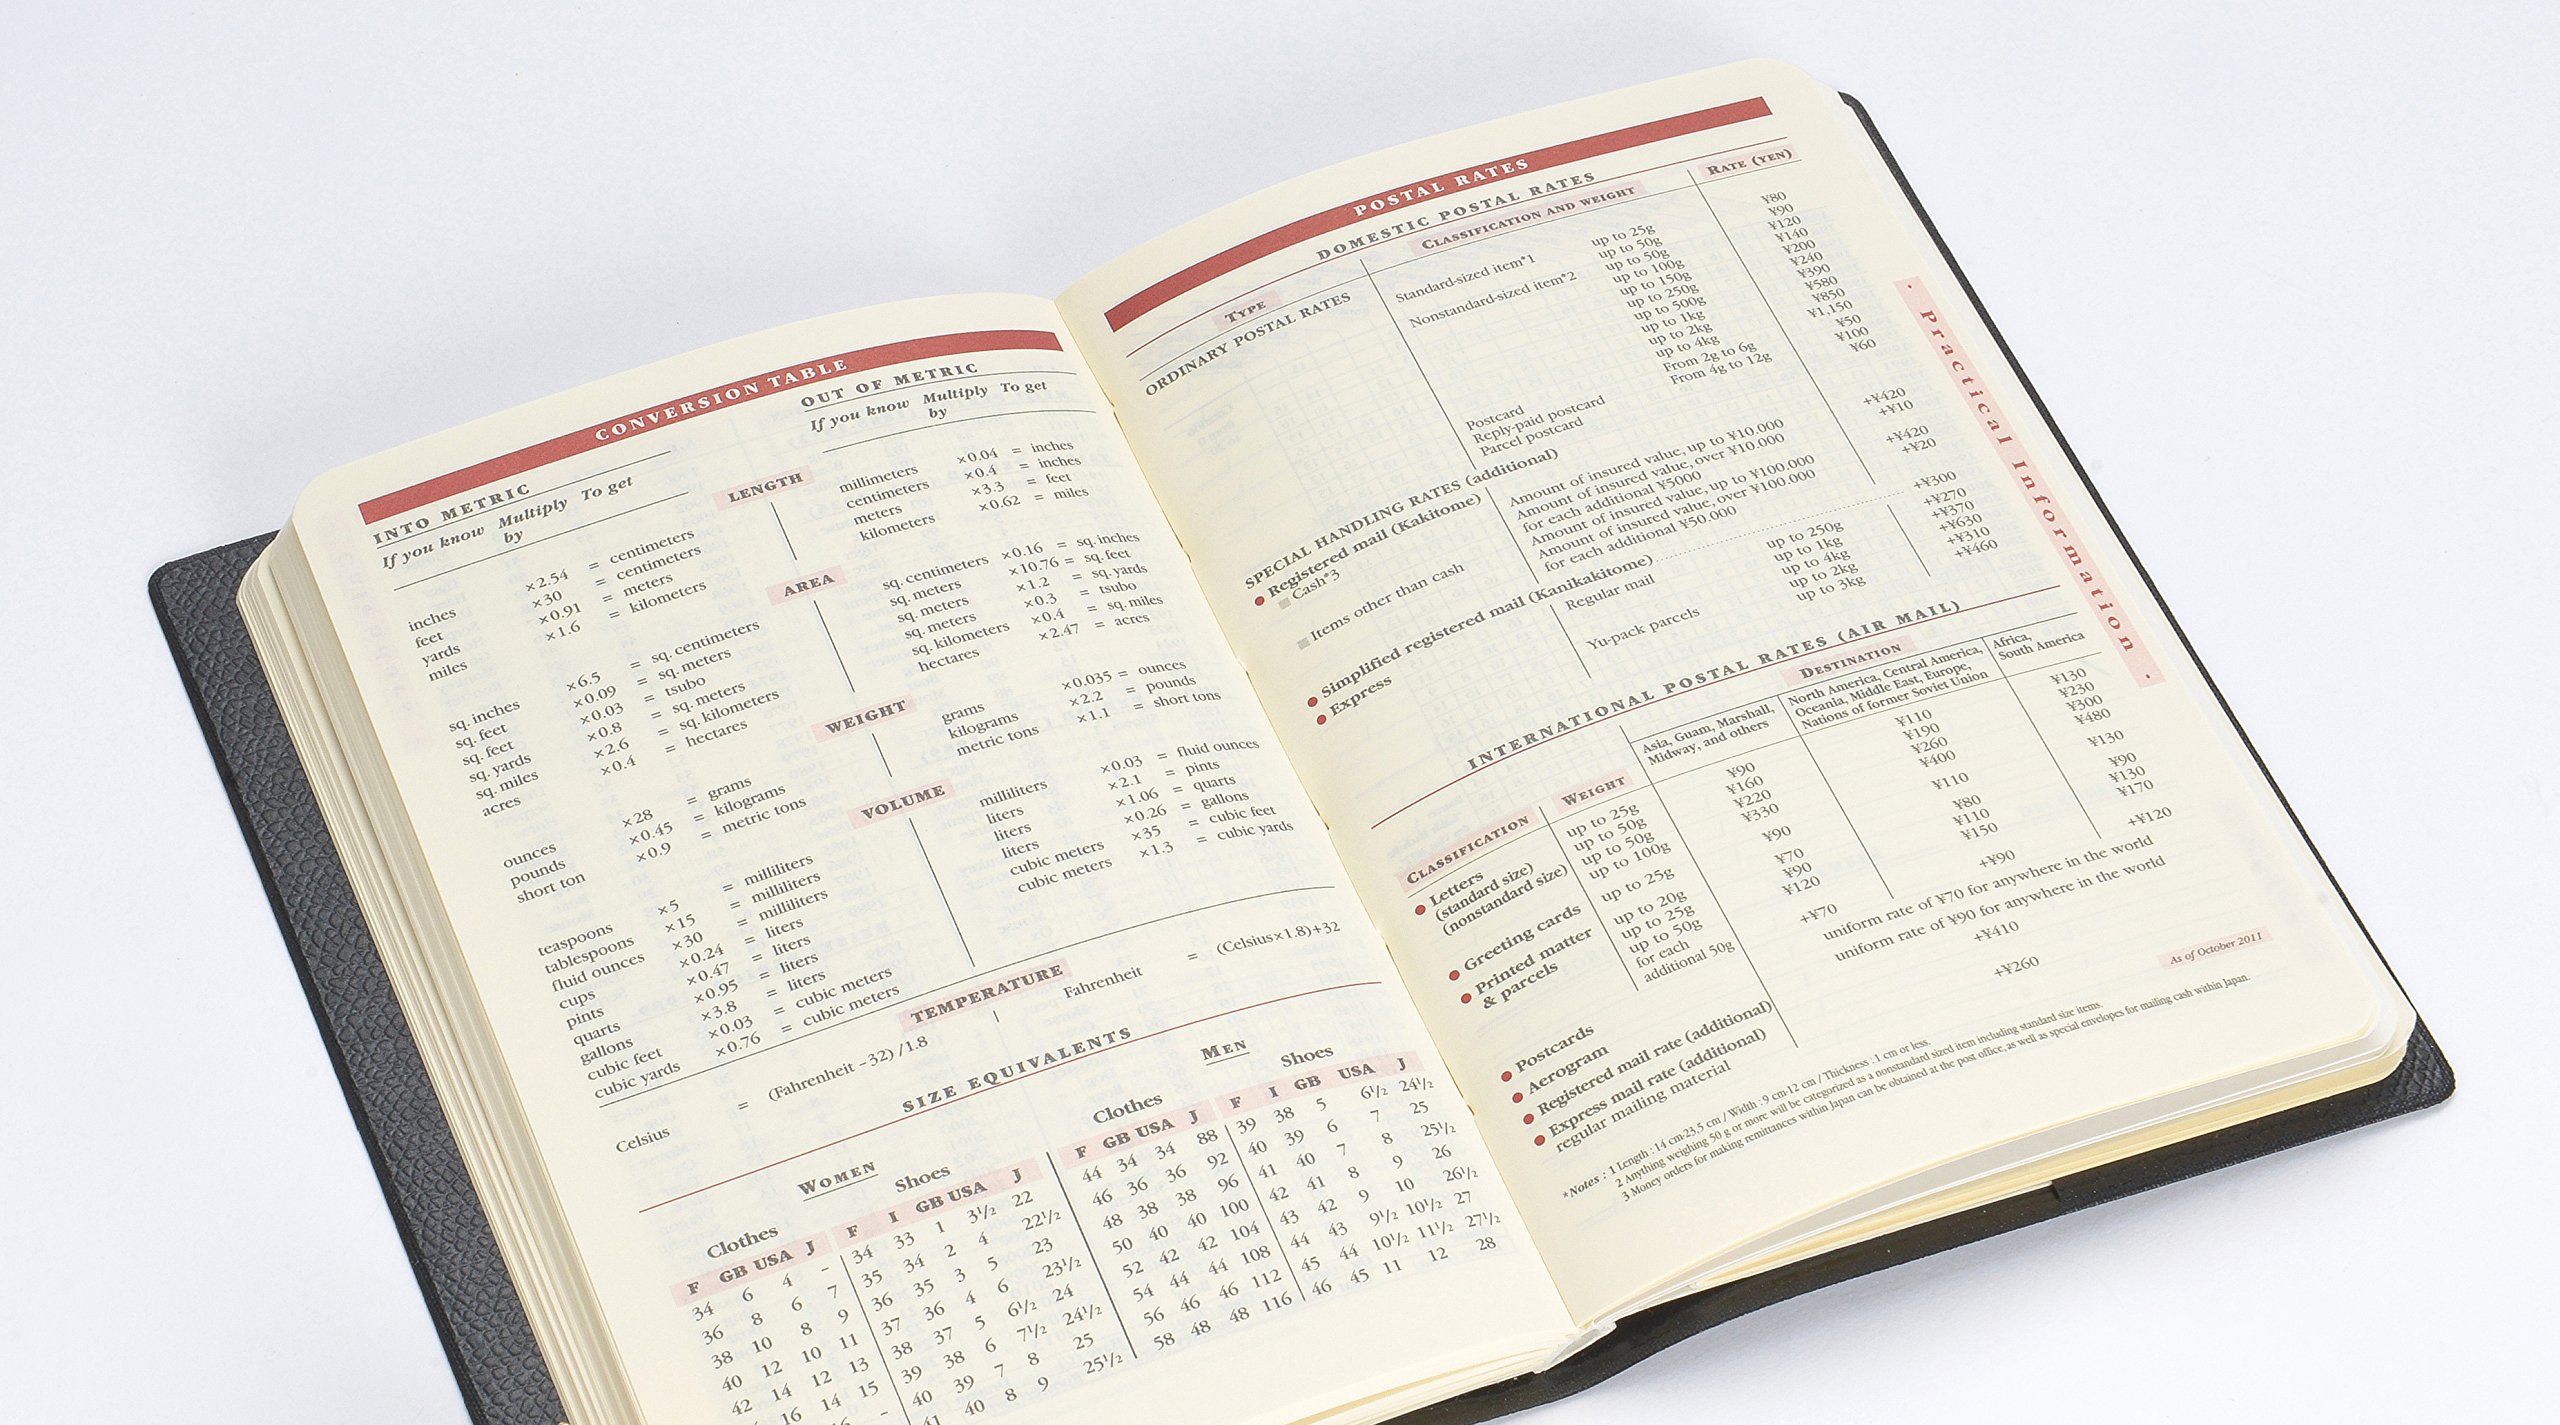 CONVERSION TABLE
INTO METRIC
If you know Multiply by To get
OUT OF METRIC
If you know Multiply by To get
LENGTH
inches ×2.54 = centimeters
feet ×30 = centimeters
yards ×0.91 = meters
miles ×1.6 = kilometers
millimeters ×0.04 = inches
centimeters ×0.4 = inches
meters ×3.3 = feet
kilometers ×0.62 = miles
AREA
sq. inches ×6.5 = sq. centimeters
sq. feet ×0.09 = sq. meters
sq. feet ×0.03 = tsubo
sq. yards ×0.8 = sq. meters
sq. miles ×2.6 = sq. kilometers
acres ×0.4 = hectares
sq. centimeters ×0.16 = sq. inches
sq. meters ×10.76 = sq. feet
sq. meters ×1.2 = sq. yards
sq. meters ×0.3 = tsubo
sq. kilometers ×0.4 = sq. miles
hectares ×2.47 = acres
WEIGHT
ounces ×28 = grams
pounds ×0.45 = kilograms
short ton ×0.9 = metric tons
grams ×0.035 = ounces
kilograms ×2.2 = pounds
metric tons ×1.1 = short tons
VOLUME
teaspoons ×5 = milliliters
tablespoons ×15 = milliliters
fluid ounces ×30 = milliliters
cups ×0.24 = liters
pints ×0.47 = liters
quarts ×0.95 = liters
gallons ×3.8 = liters
cubic feet ×0.03 = cubic meters
cubic yards ×0.76 = cubic meters
milliliters ×0.03 = fluid ounces
liters ×2.1 = pints
liters ×1.06 = quarts
liters ×0.26 = gallons
cubic meters ×35 = cubic feet
cubic meters ×1.3 = cubic yards
TEMPERATURE
Celsius = (Fahrenheit –32) /1.8
Fahrenheit = (Celsius×1.8)+32
SIZE EQUIVALENTS
WOMEN
Clothes
F GB USA J
34 6 4 -
36 8 6 7
38 10 8 9
40 12 10 11
42 14 12 13
16 14 15
-
Shoes
F I GB USA J
34 33 1 3½ 22
35 34 2 4 22½
36 35 3 5 23
37 36 4 6 23½
38 37 5 6½ 24
39 38 6 7½ 24½
40 39 7 8 25
41 40 8 9 25½
MEN
Clothes
F GB USA J
44 34 34 88
46 36 36 92
48 38 38 96
50 40 40 100
52 42 42 104
54 44 44 108
56 46 46 112
58 48 48 116
Shoes
F I GB USA J
39 38 5 6½ 24½
40 39 6 7 25
41 40 7 8 25½
42 41 8 9 26
43 42 9 10 26½
44 43 9½ 10½ 27
45 44 10½ 11½ 27½
46 45 11 12 28
POSTAL RATES
DOMESTIC POSTAL RATES
TYPE CLASSIFICATION AND WEIGHT RATE (YEN)
ORDINARY POSTAL RATES
Standard-sized item*1 up to 25g ¥80
up to 50g ¥90
Nonstandard-sized item*2 up to 50g ¥120
up to 100g ¥140
up to 150g ¥200
up to 250g ¥240
up to 500g ¥390
up to 1kg ¥580
up to 2kg ¥850
up to 4kg ¥1,150
From 2g to 6g
From 4g to 12g
Postcard ¥50
Reply-paid postcard ¥100
Parcel postcard ¥60
SPECIAL HANDLING RATES (additional)
● Registered mail (Kakitome)
Cash*3
Amount of insured value, up to ¥10.000 +¥420
Amount of insured value, over ¥10.000 +¥10
for each additional ¥5000
Items other than cash
Amount of insured value, up to ¥100.000 +¥420
Amount of insured value, over ¥100.000 +¥20
for each additional ¥50.000
● Simplified registered mail (Kanikakitome) +¥300
● Express
Regular mail up to 250g +¥270
up to 1kg +¥370
up to 4kg +¥630
Yu-pack parcels up to 2kg +¥310
up to 3kg +¥460
INTERNATIONAL POSTAL RATES (AIR MAIL)
DESTINATION
CLASSIFICATION WEIGHT
Asia, Guam, Marshall,
Midway, and others
North America, Central America,
Oceania, Middle East, Europe,
Nations of former Soviet Union
Africa,
South America
● Letters
(standard size) up to 25g ¥90 ¥110 ¥130
up to 50g ¥160 ¥190 ¥230
(nonstandard size) up to 50g ¥220 ¥260 ¥300
up to 100g ¥330 ¥400 ¥480
● Greeting cards up to 25g ¥90 ¥110 ¥130
● Printed matter
& parcels
up to 20g ¥70 ¥80 ¥90
up to 25g ¥90 ¥110 ¥130
up to 50g ¥120 ¥150 ¥170
for each
additional 50g +¥70 +¥90 +¥120
● Postcards uniform rate of ¥70 for anywhere in the world
● Aerogram uniform rate of ¥90 for anywhere in the world
● Registered mail rate (additional) +¥410
● Express mail rate (additional)
regular mailing material +¥260
As of October 2011
*Notes : 1 Length : 14 cm-23,5 cm / Width : 9 cm-12 cm / Thickness : 1 cm or less.
2 Anything weighing 50 g or more will be categorized as a nonstandard sized item including standard size items.
3 Money orders for making remittances within Japan can be obtained at the post office, as well as special envelopes for mailing cash within Japan.
· Practical Information ·